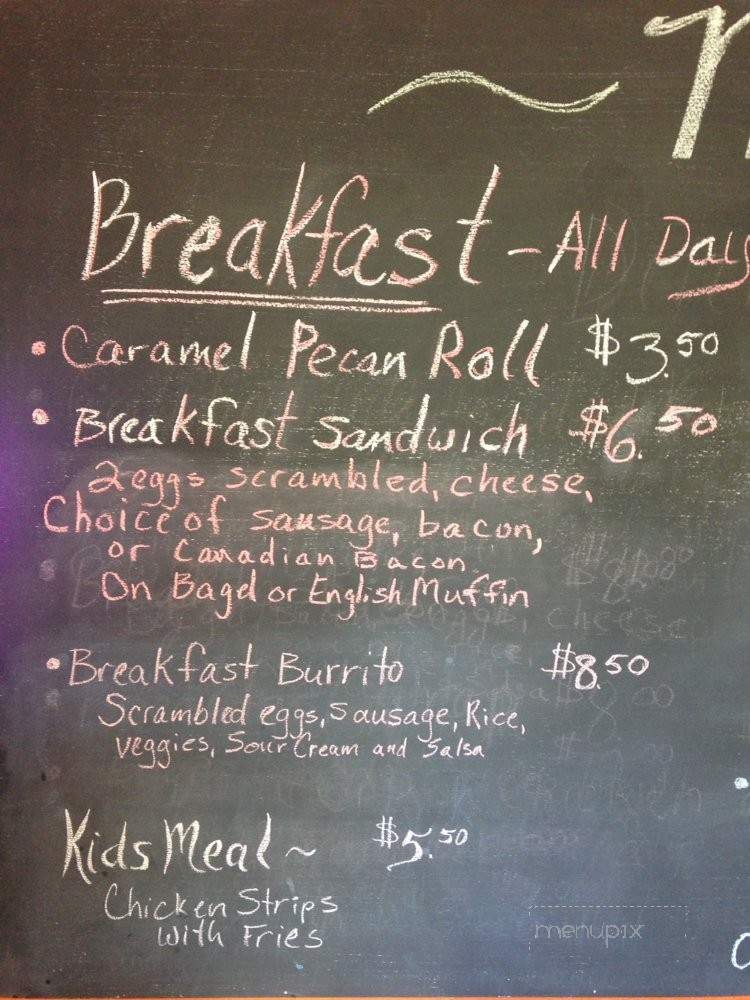 Breakfast - All Day
• Caramel Pecan Roll $3.50
• Breakfast Sandwich $6.50
2 eggs scrambled, cheese,
Choice of sausage, bacon,
or Canadian Bacon.
On Bagel or English Muffin
• Breakfast Burrito $8.50
Scrambled eggs, Sausage, Rice,
veggies, Sour Cream and Salsa
Kids Meal ~ $5.50
Chicken Strips
with Fries
menupix